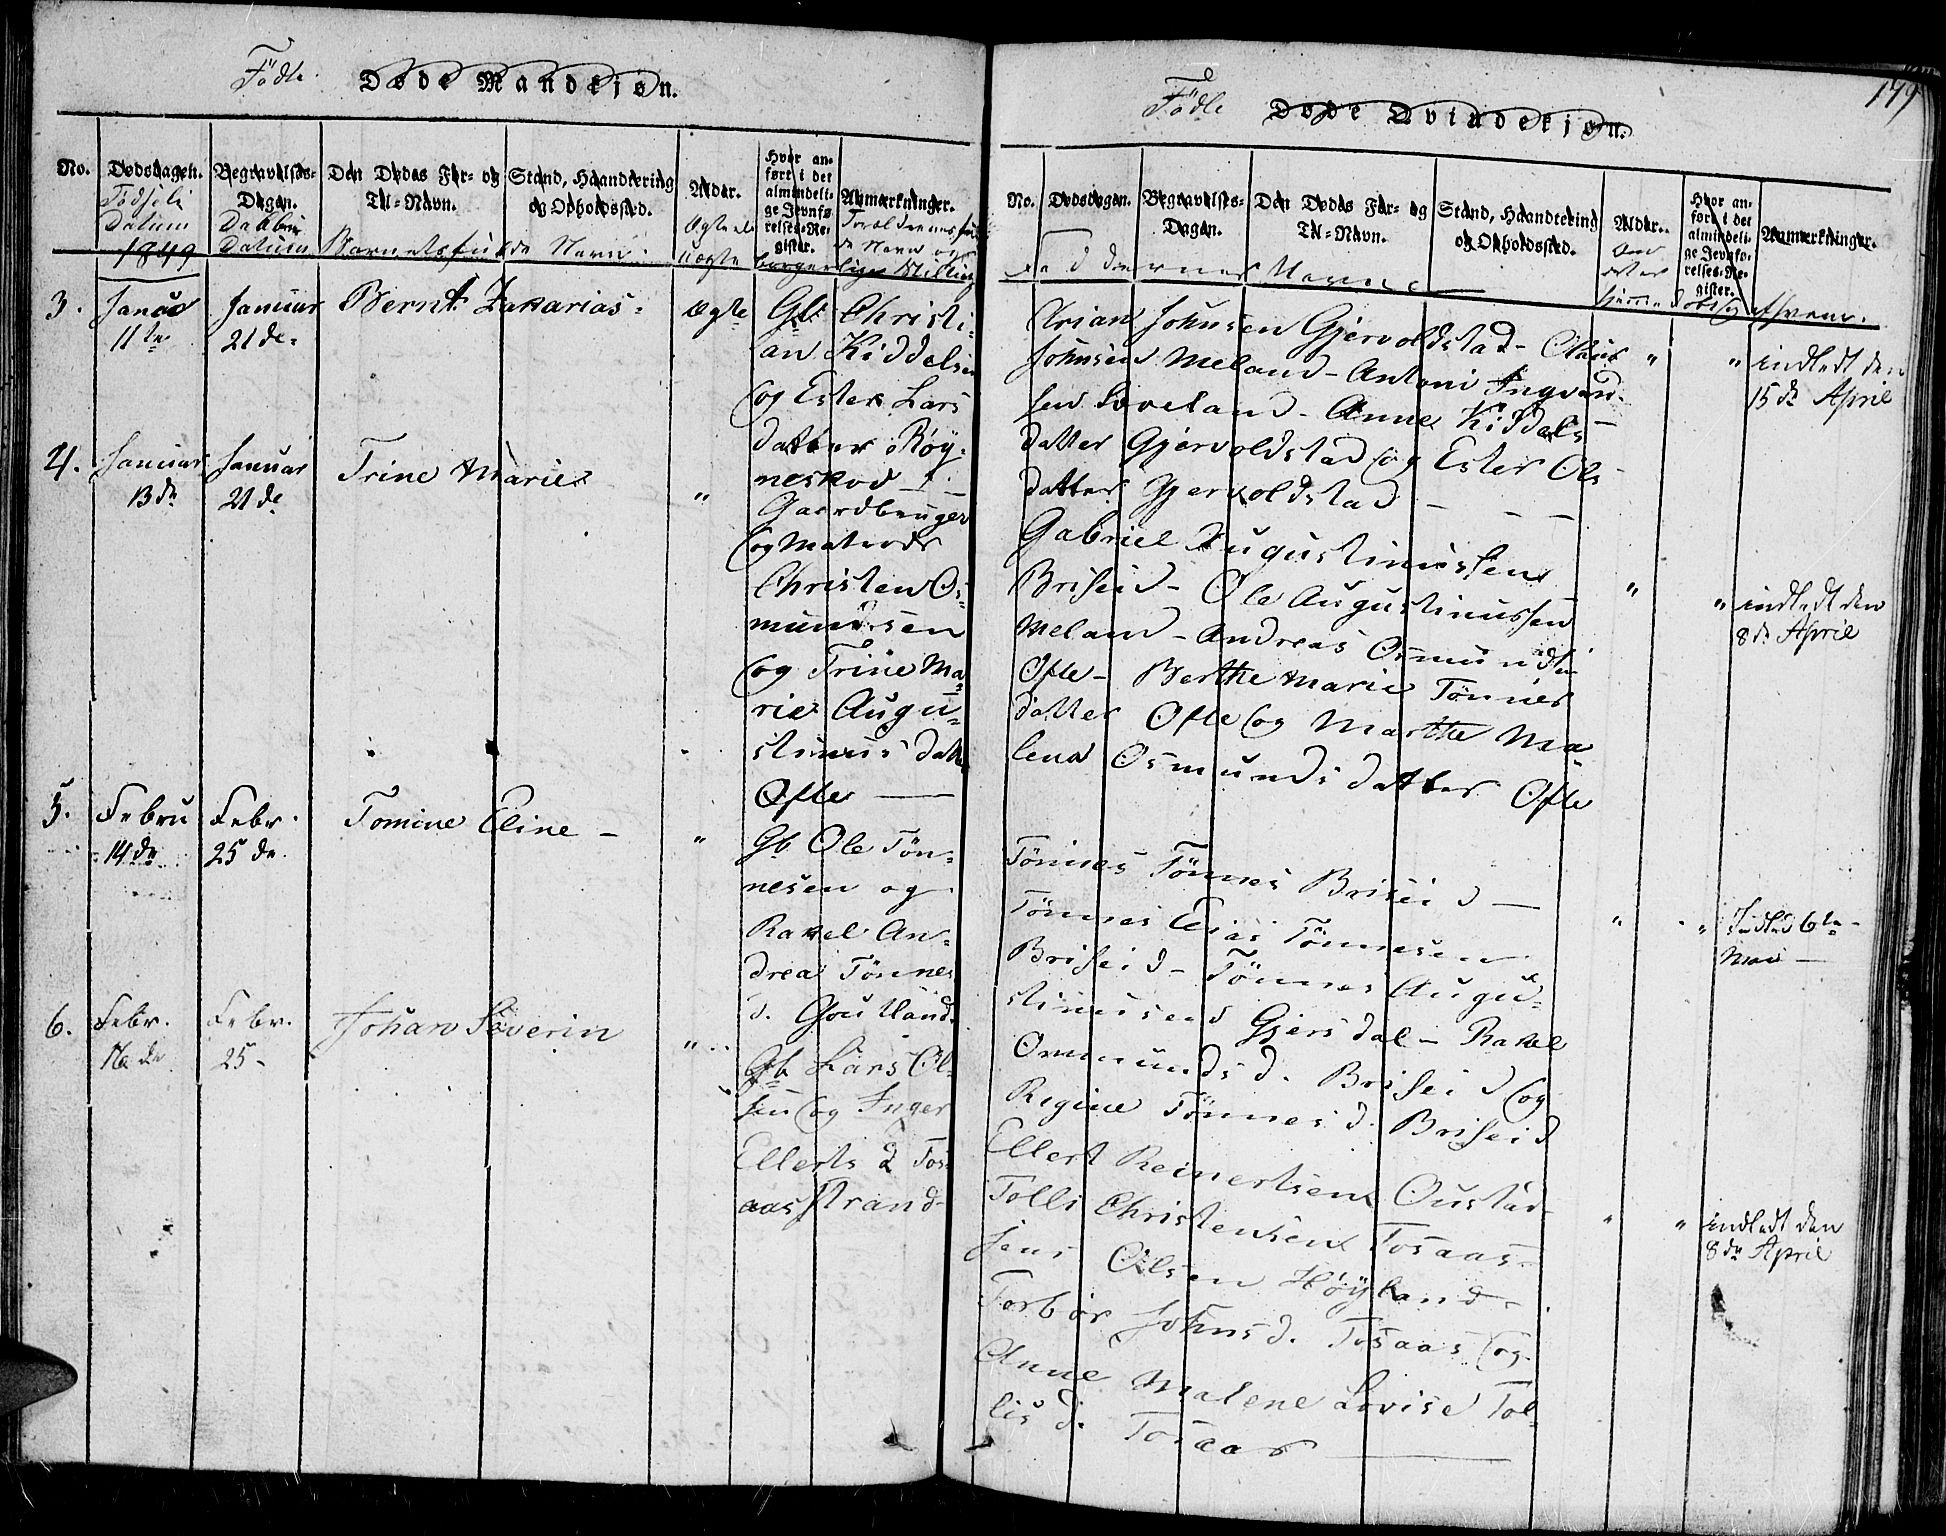 Födte Døde Mandkjøn.
No. Dødsdagen. Begravelses-Dagen. Den Dødes For- og Til-Navn. Stand, Haandtering og Opholdssted. Alder. Hvor anført i det almindelige Jevnførelses-Register. Anmerkninger.
Datum
Datum Barnets fulde Navn. Uægte borgerlige Stilling
1849
3. Januar 11te Januar 21de. Bernt Zakarias. Ægte Gb Christi-
an Kiddelsen
og Ester Lars
datter Røy-
neskod
4. Januar 13de Januar 21de Trine Marie "
Gaardbruger
og Matrods
Christen Os-
mundsen
og Trine Ma-
rie Augu-
stinus datter
Ofte
5. Febru 14de Febr. 25de. Tomine Eline - "
Gb. Ole Tön-
nesen og
Rakel An-
drea Tönnes
d.
6. Febr. 16de Febr. 25- Johan Severin "
Gb Lars Ol-
sen og Inger
Ellerts d Tos-
aas strand
Födte Døde Qvindekjøn. 179
No. Dødsdagen. Begravelses-Dagen. Den Dødes For- og Til-Navn. Stand, Haandtering og Opholdssted. Alder. Hvor anført i det almindelige Jevnførelses-Register. Anmerkninger.
Faddernes Navne
Arian Johnsen Gjervoldstad - Claus " "
Johnsen Meland - Antoni Ingvald-
sen Loveland - Anne Kiddels-
datter Gjervoldstad og Ester Ols-
datter Gjervoldstad
indledt den
15de April
Gabriel Augustinussen
Briseid - Ole Augustinussen " "
Meland - Andreas Osmundsen
Ofte - Berthe Marie Tönnes
datter Ofte og Marthe Ma-
lena Osmunds datter Ofte
indledt den
8de April
Tönnes Tönnes Briseid
Tönnes Elias Tönnesen " "
Briseid - Tönnes Augu-
stinusen Gjersdal - Rakel
Ommunds d. Briseid og
Regine Tönnes d. Briseid
Indled 6te
Mai
Ellert Reinertsen Oustad
Tolli Christensen Tosaas " "
Jens Olsen Höyland
Torbor Johns d. Tosaas og
Anne Malene Lovise Tol-
lis d. Tosaas
indledt den
8de April